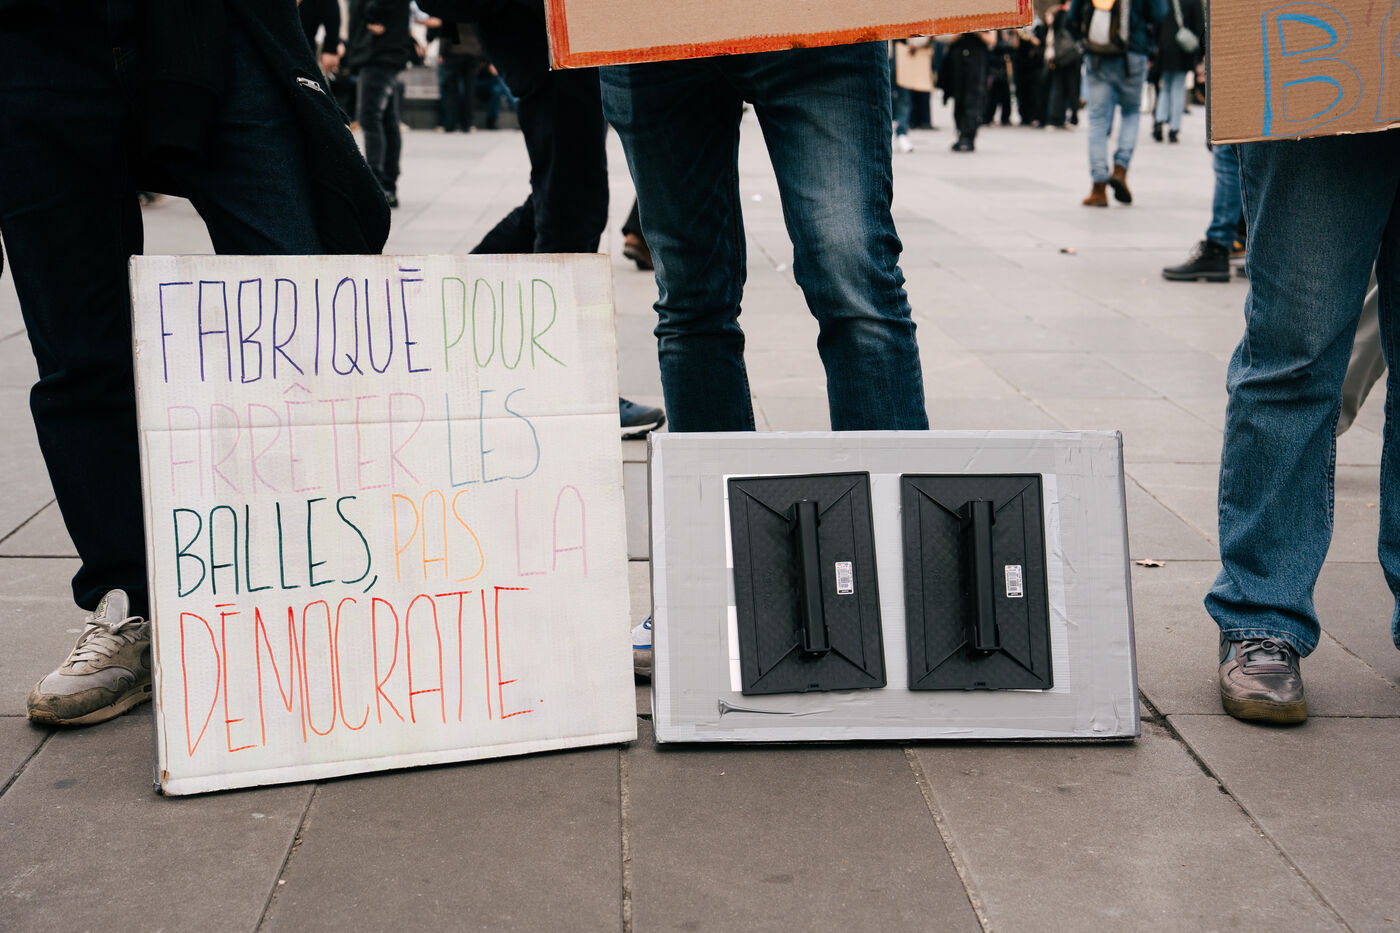 FABRIQUÉ POUR
ARRÊTER LES
BALLES, PAS LA
DÉMOCRATIE.